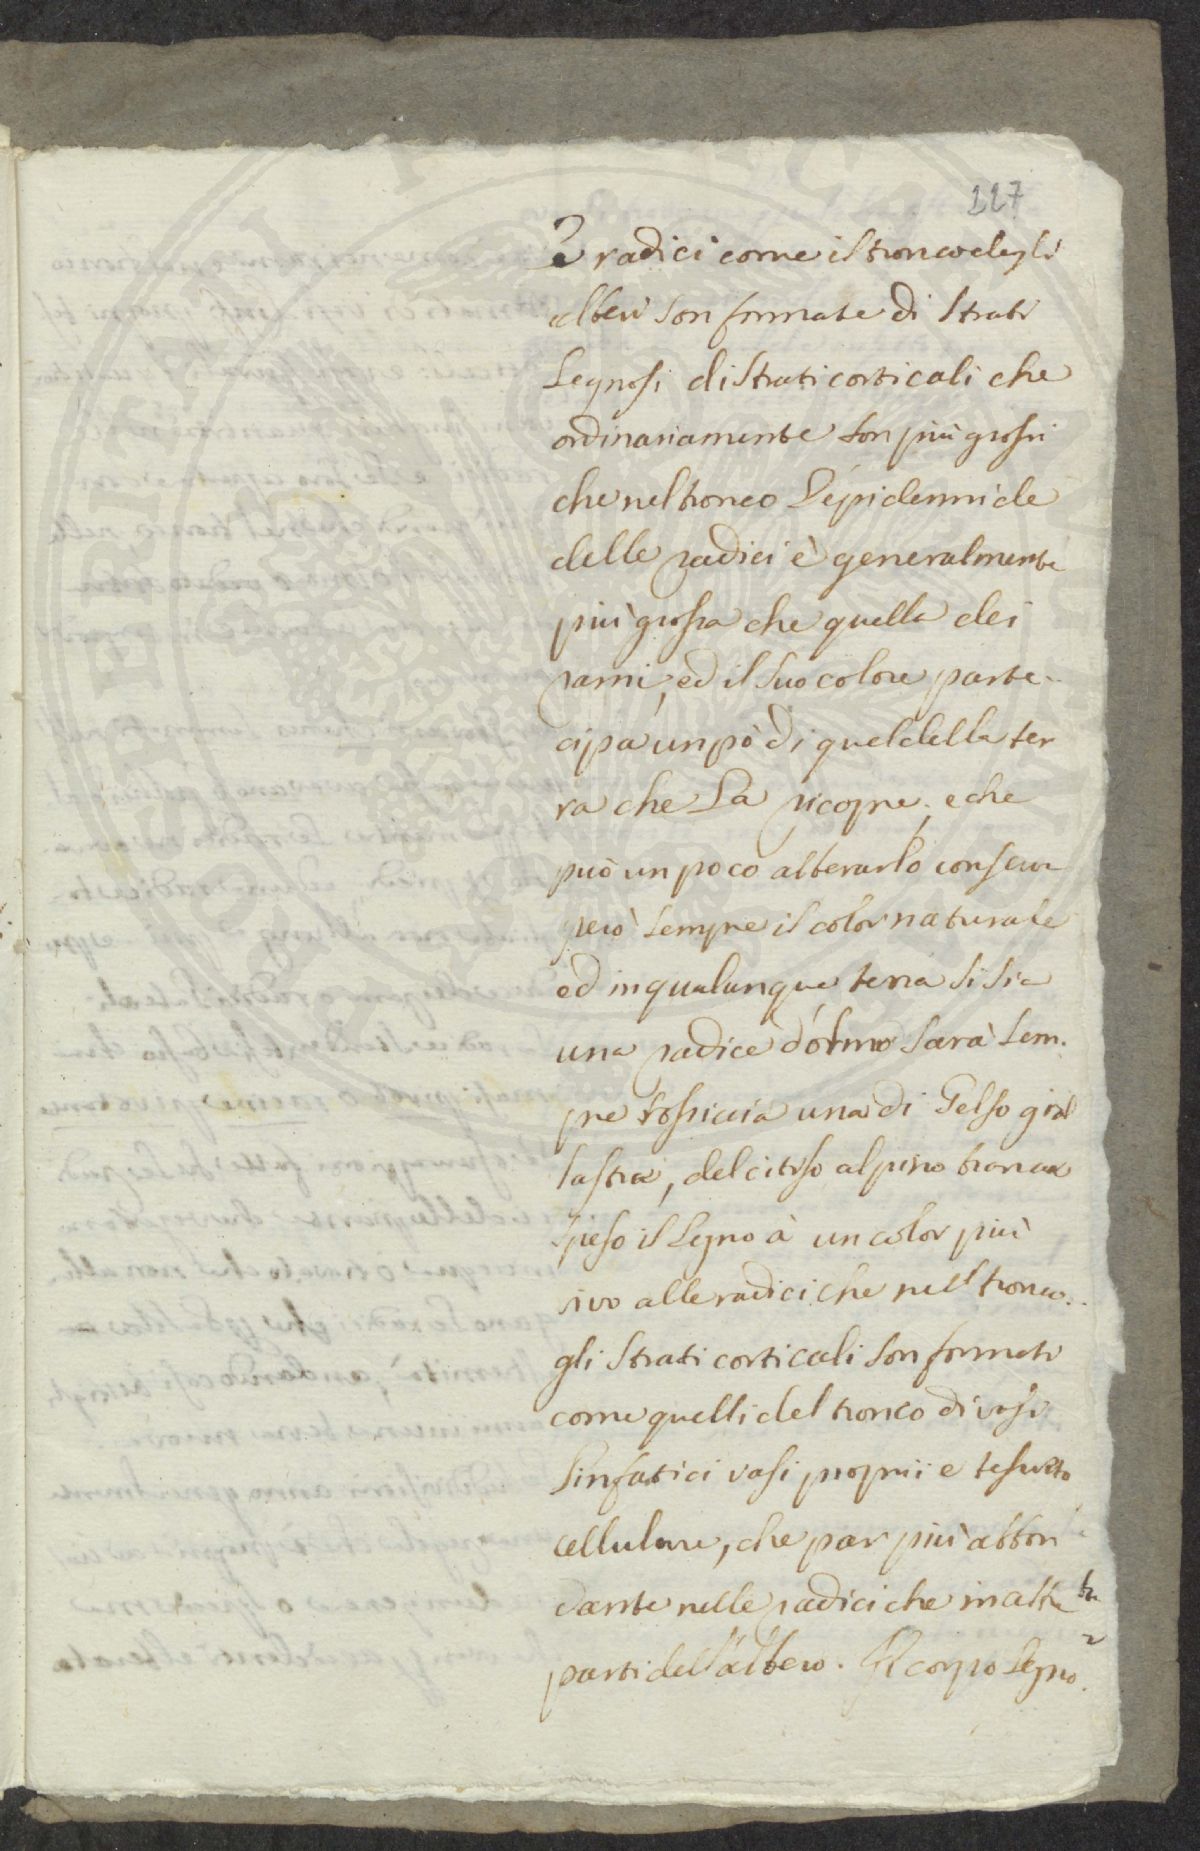 117
Le radici come il tronco degli
alberi son formate di strati
Legnosi di strati corticali che
ordinariamente son più grossi
che nel tronco L'epidermide
delle radici è generalmente
più grossa che quella dei
rami, ed il suo colore parte-
cipa un pò di quel della ter
ra che La ricopre, e che
può un poco alterarlo conserva
però sempre il color naturale
ed in qualunque terra si sia
una radice d'olmo sarà sem.
pre rossiccia una di Gelso gial
lastra, del citiso alpino
speso il Legno à un color più
vivo alle radici che nell tronco.
gli strati corticali son formati
come quelli del tronco di vasi
Linfatici vasi proprii e tesuto
cellulare, che par più abbon
dante nelle radici che in altre
parti dell'albero. Il corpo Legno